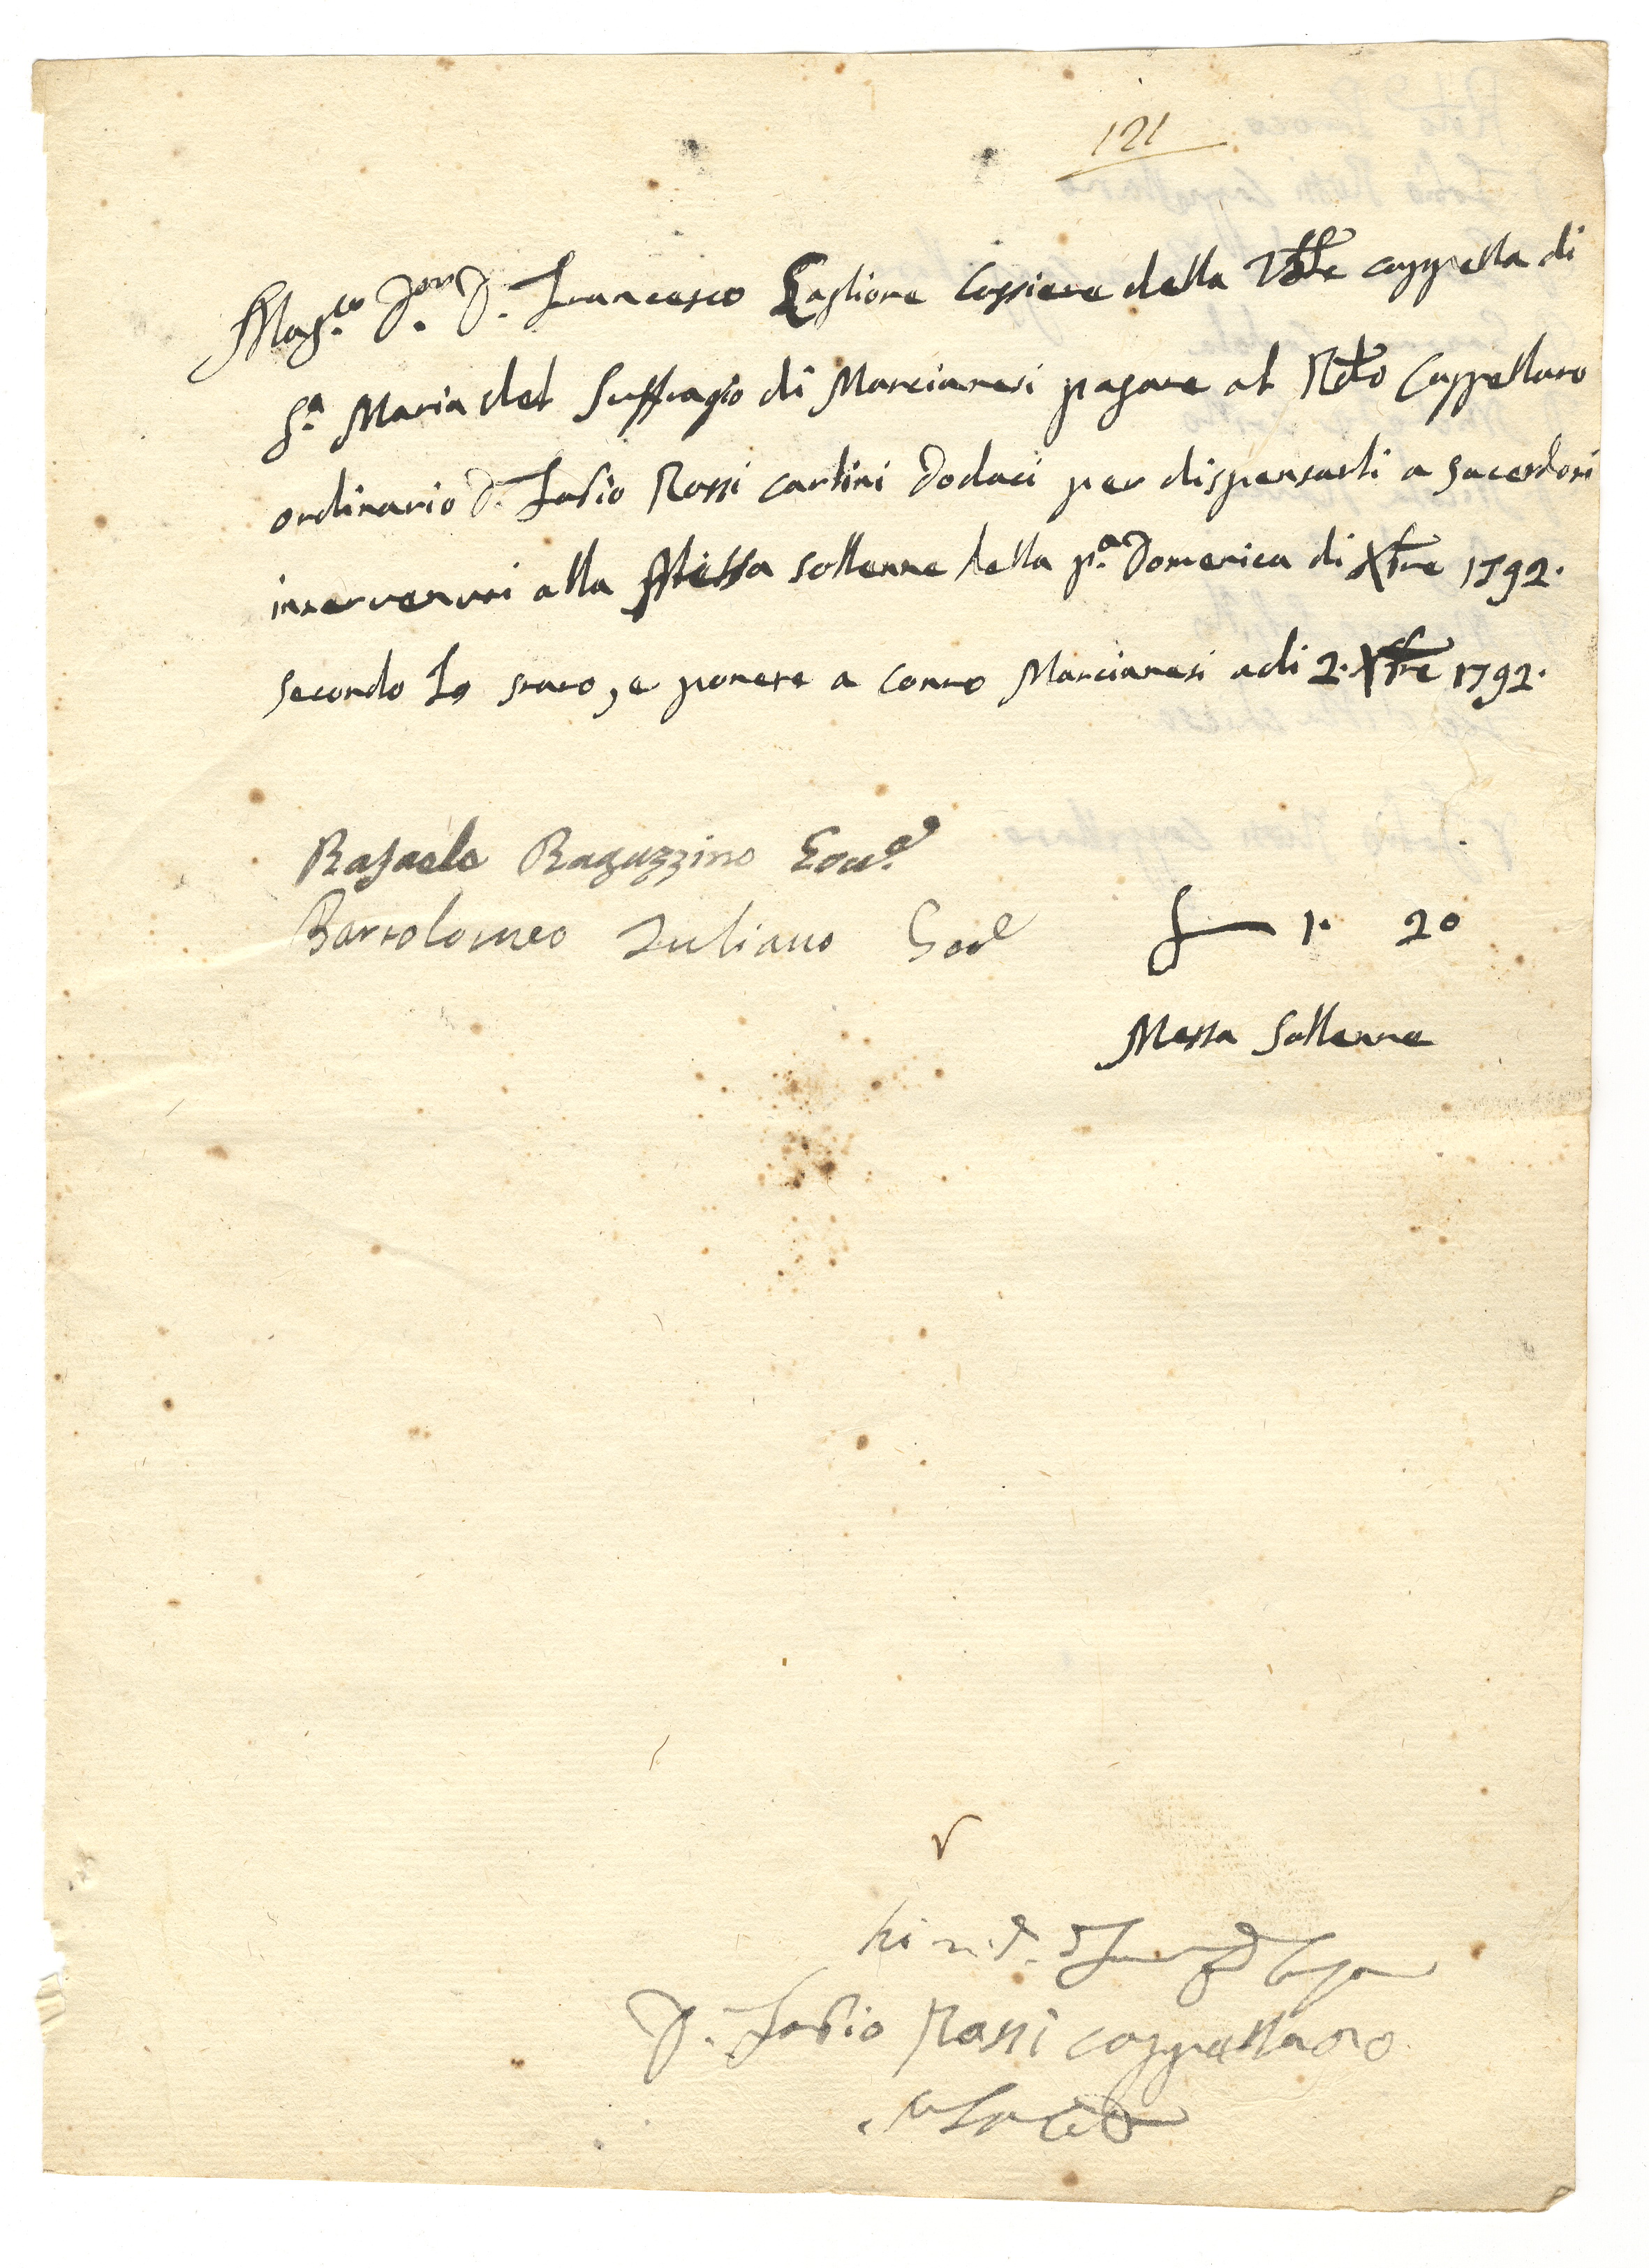 121
Mag.co D.r D. Francesco Taglione Cassiere della Vble cappella di
S.a Maria del Suffragio di Marcianesi pagare al Rdo Cappellano
ordinario D. Fabio Rossi carlini dodaci per dispensarli a sacerdoti
intervenuti alla Messa sollenne della p.a Domenica di Xbre 1792.
secondo lo stato, e ponete a conto Marcianesi adi 2. Xbre 1792.
Rafaele Raguzzino Gov.e
Bartolomeo Iuliano Gove
1. 20
Messa Sollenne
D. Fabio Rossi cappellano